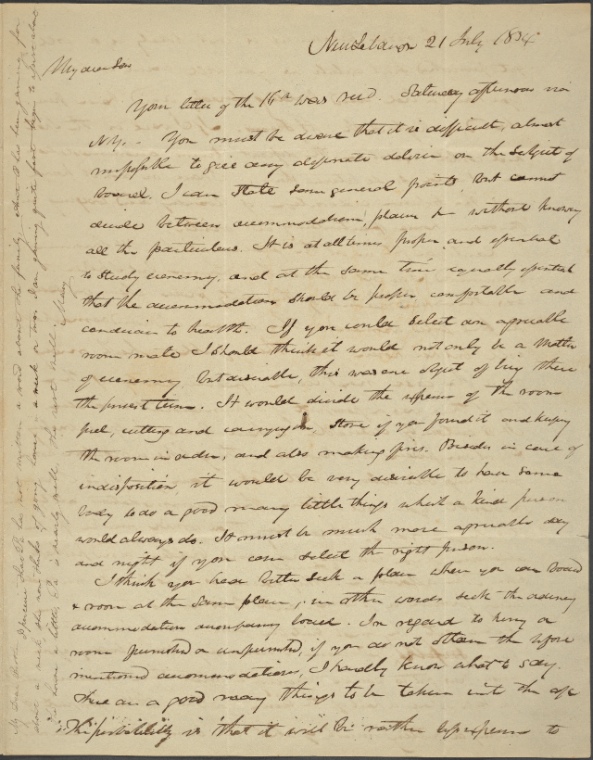 New Lebanon 21 July 1834
My dear Son
Your letter of the 16th was recd. Saturday afternoon via
N.Y. You must be aware that it is difficult, almost
impossible to give any definite advice on the subject of
board. I can state some general points, but cannot
decide between accommodations, place &c without knowing
all the particulars. It is at all times proper and essential
to study economy, and at the same time equally essential
that the accommodations should be proper comfortable and
conducive to health. If you could select an agreeable
room mate I should think it would not only be a matter
of economy but desirable, this was one object of being there
the present term. It would divide the expense of the room
fuel, cutting and carrying do, stove if you found it and keeping
the room in order, and also making fires. Besides in case of
indisposition it would be very desirable to have some
body to do a good many little things which a kind person
would always do. It must be much more agreeable day
and night if you can select the right person.
I think you had better seek a place where you can board
& room at the same place, in other words seek the
accommodation accompanying board. In regard to hiring a
room furnished or unfurnished, if you do not obtain the before
mentioned accommodations, I hardly know what to say.
There are a good many things to be taken into the
The probability is that it will be rather less expense to
My dear Brother, I presume
written a word about the family
has been
for
a week or two. I am
quite fast